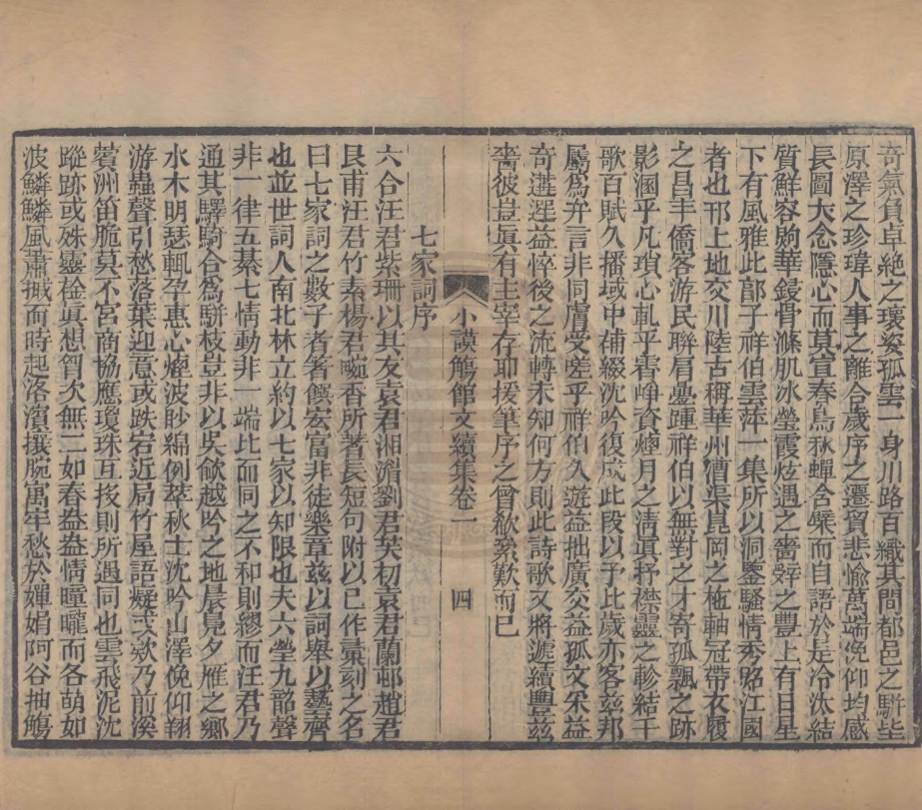 奇氣負卓絕之瓌姿孤雲一身川路百織其間都邑之駢坒
原澤之珍瑋人事之離合歲序之遷貿悲愉萬端俛仰均感
長圖大念隱心而莫宣春鳥秋蟬含櫱而自語於是冷汰結
質鮮容煦華鎪骨滌肌冰瑩霞炫遇之嗇辤之豐上有日星
下有風雅此郋子祥伯雲萍一集所以洞鑒騷情秀照江國
者也邗上地交川陸古稱華州漕渠崑岡之柂軸冠帶衣履
之昌丰僑客游民聯肩疊踵祥伯以無對之才寄孤飄之跡
影溷乎凡瑣心軋乎奇崢資煙月之淸眞抒襟靈之軫結千
歌百賦久播域中補綴沈吟復成此段以予比歲亦客茲邦
屬爲弁言非同膚受嗟乎祥伯久遊益拙廣交益孤文采益
奇遭遲益悴後之流轉未知何方則此詩歌又將遞續豐茲
嗇彼豈眞有主宰存耶援筆序之曾欷絫歎而已
小謨觴館文續集卷一　四
七家詞序
六合汪君紫珊以其友袁君湘湄劉君芙初袁君蘭邨趙君
艮甫汪君竹素楊君畹香所著長短句附以已作彙刻之名
曰七家詞之數子者著饌宏富非徒樂章茲以詞舉以藝齊
也並世詞人南北林立約以七家以知限也夫六瑩九韶聲
非一律五綦七情動非一端比而同之不和則繆而汪君乃
通其驛騎合爲駢枝豈非以吳歈越吟之地晨鳧夕雁之鄉
水木明瑟輒孕惠心煙波眇綿例萃秋士沈吟山澤俛仰翔
游蟲聲引愁落葉迎意或跌宕近局竹屋語癡或欸乃前溪
蘋洲笛脆莫不宮商協應瓊珠互投則所遇同也雲飛泥沈
蹤跡或殊靈襟眞想智次無二如春益益情曈曨而各萌如
波鱗鱗風蕭摵而時起洛濱攘腕寓牢愁於嬋娟阿谷抽觴